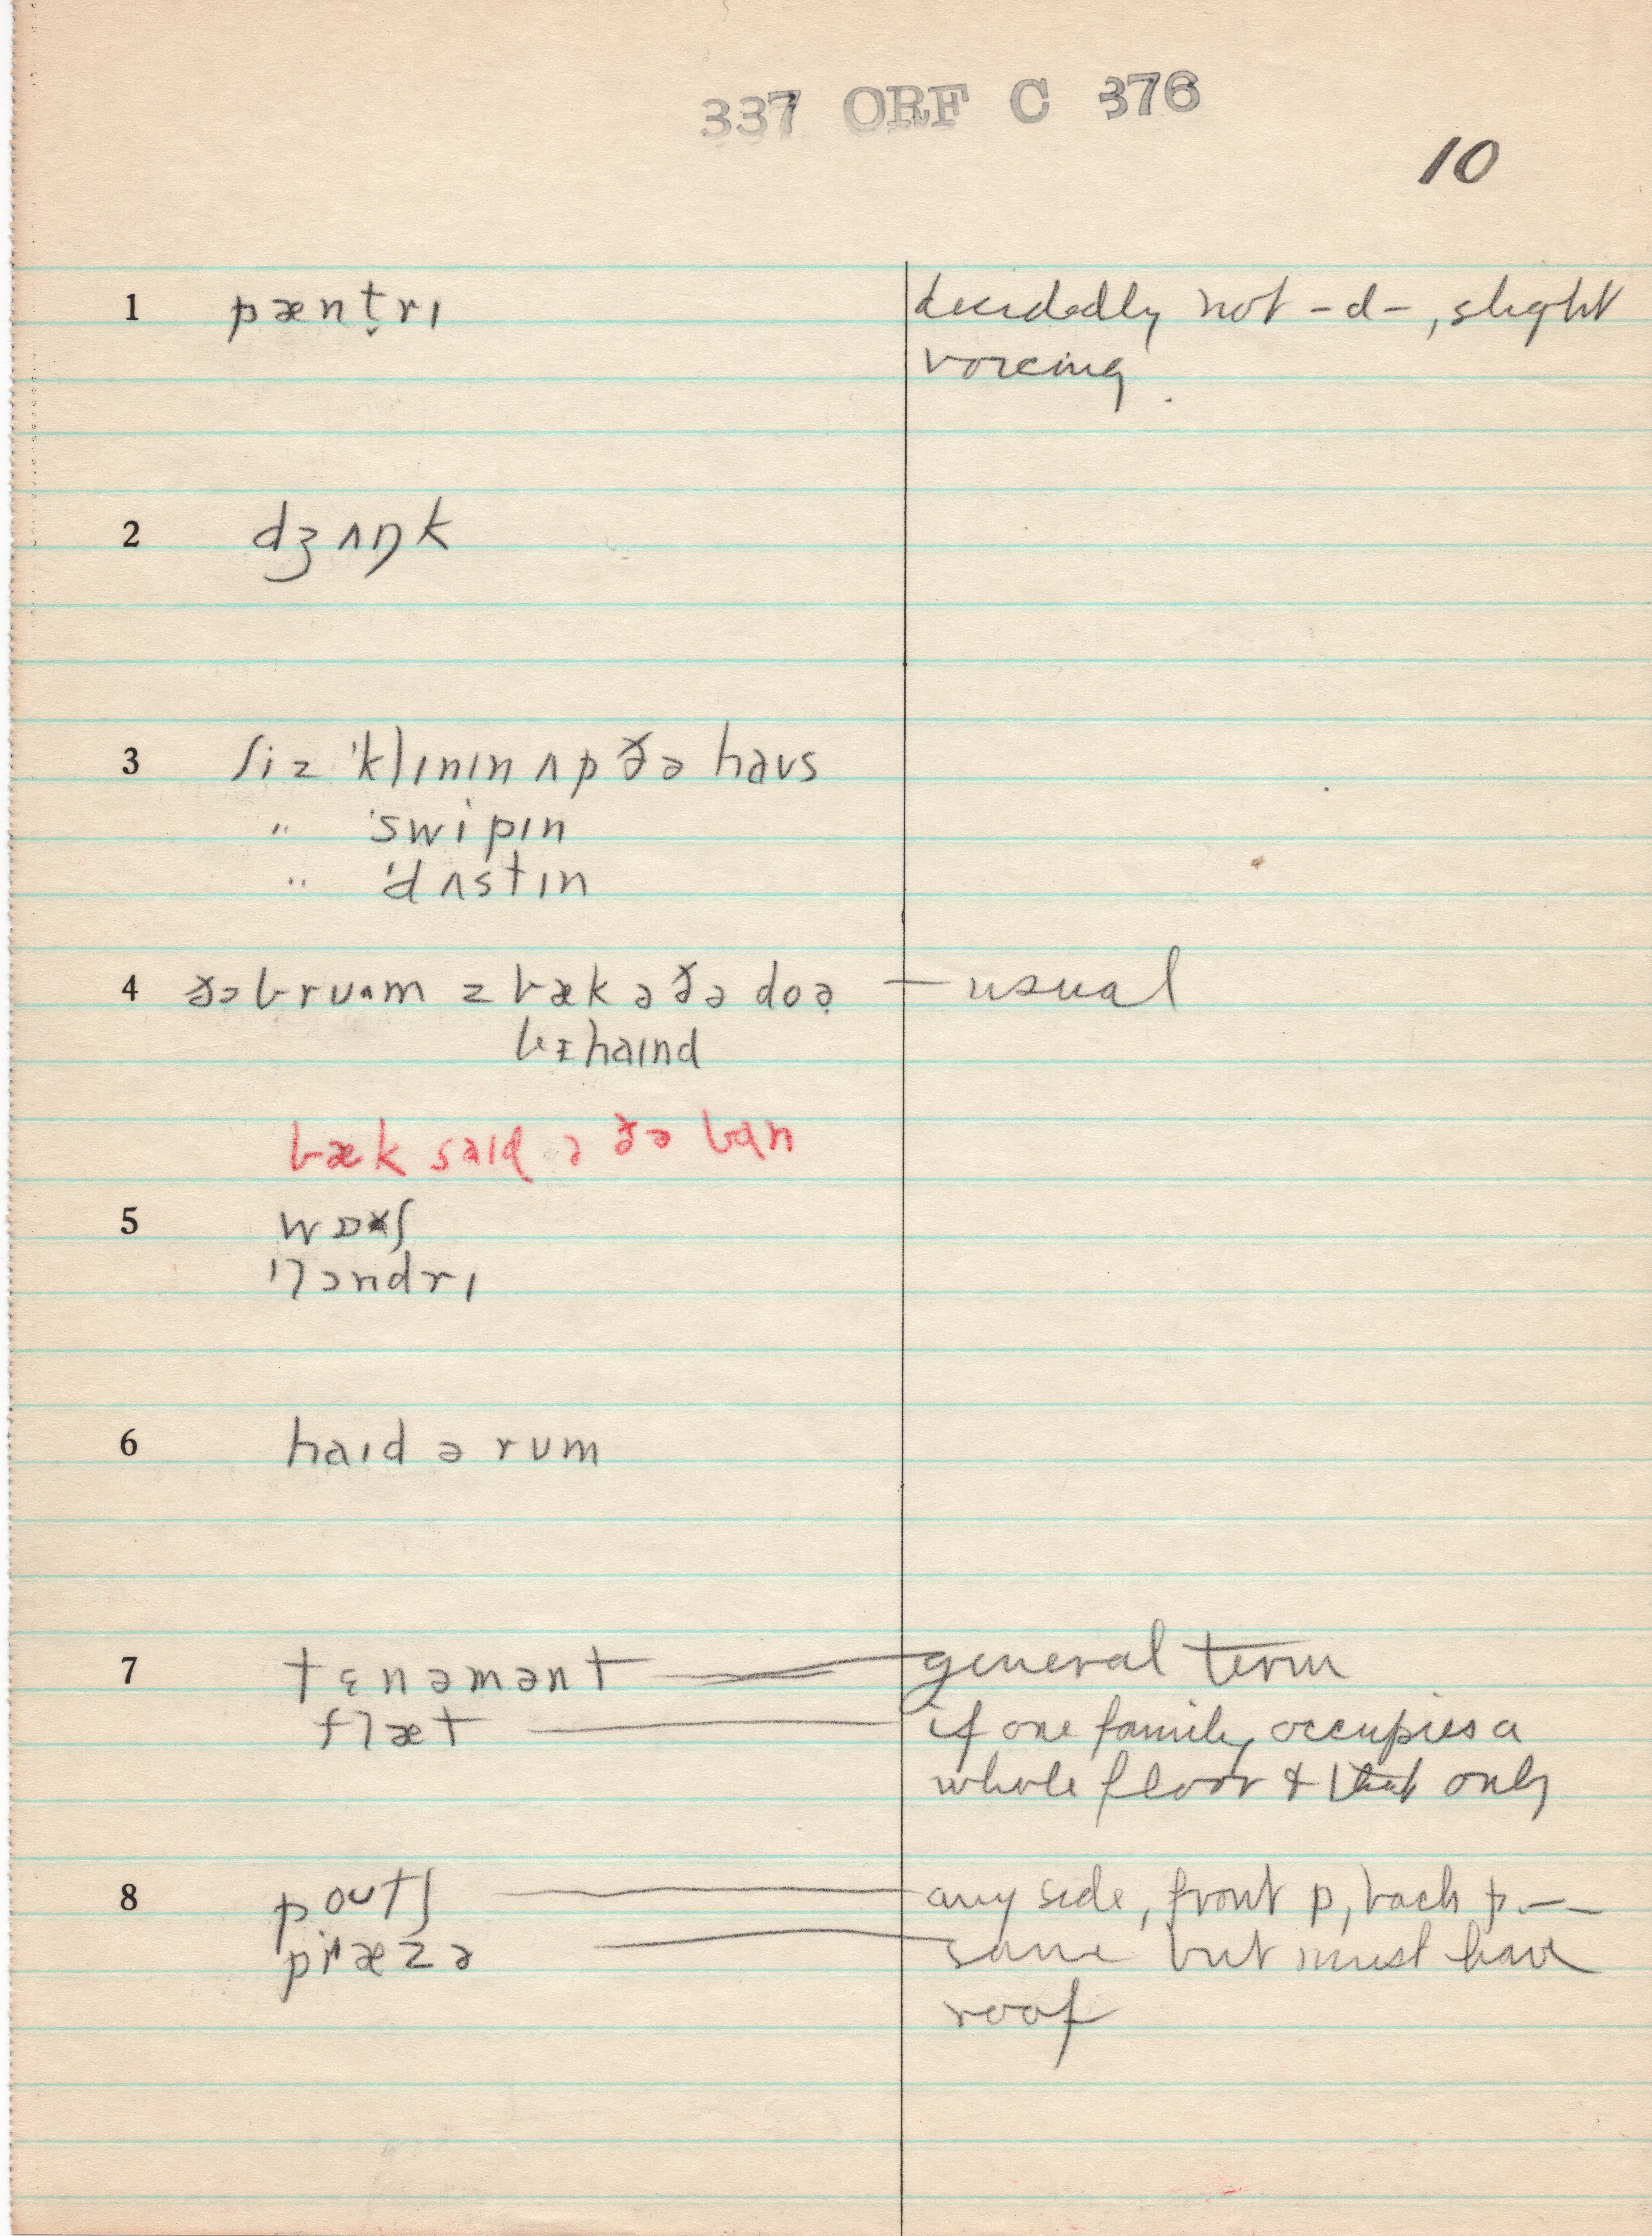 337 ORF C 376
10
1 pæntṛɪ decidedly not -d-, slight
voicing.
2 dʒʌŋk
3 ʃiz ˈklɪnɪn ʌp ðə haʊs
" ˈswipɪn
" ˈdʌstɪn
4 ðə brʊᴧm z bæk ə ðə doə̣ — usual
bɪ̵haɪnd
bæk saɪd ə ðə ban
5 wɒʃ
ˈlɔndrɪ
6 haɪd ə rum
7 tɛnəmənt — general term
flæt — if one family occupies a
whole floor & that only
8 poʊtʃ — any side, front p, back p. —
pɪˈæzə — same but must have
roof